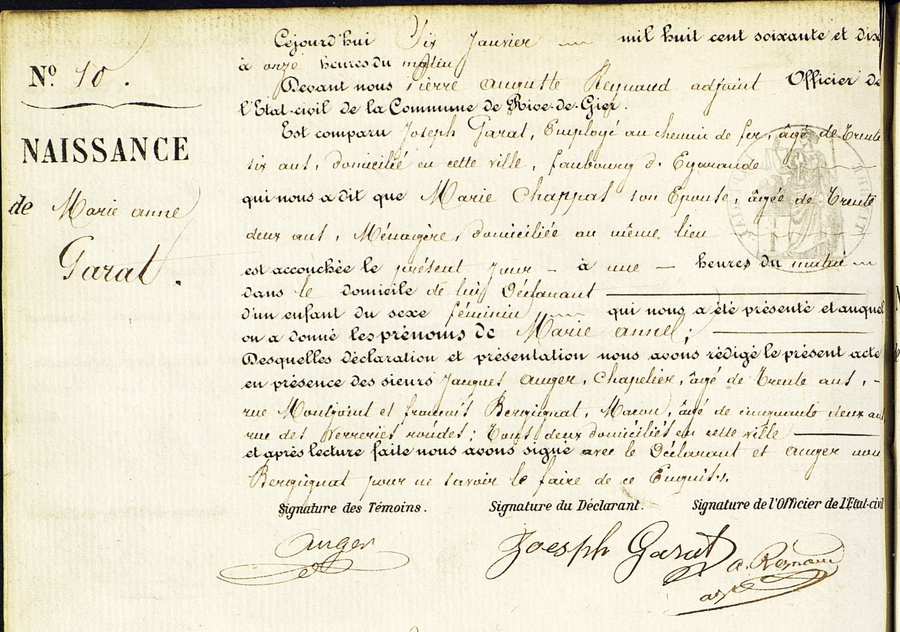 Nº 10.
NAISSANCE
de Marie anne
Garat.
Cejourd'hui Six Janvier mil huit cent soixante et dix
à onze heures du matin
Devant nous Pierre auguste Reynaud adjoint Officier de
l'Etat-civil de la Commune de Rive-de-Gier.
Est comparu Joseph Garat, Employé au chemin de fer, âgé de trente
six ans, domicilié en cette ville, faubourg d'Egarande
qui nous a dit que Marie Chappat son Epouse, âgée de trente
deux ans, Ménagère, domiciliée au même lieu
est accouchée le présent jour - à une - heures du matin
dans le domicile de lui Déclarant
d'un enfant du sexe féminin qui nous a été présenté et auquel
on a donné les prénoms de Marie anne;
Desquelles déclaration et présentation nous avons rédigé le présent acte
en présence des sieurs Jacques auger, Chapelier, âgé de trente ans, -
rue Montjoint et françois Bergignat, Macon, âgé de cinquante deux ans
rue des Verreries roudes; tous deux domiciliés en cette ville
et après lecture faite nous avons signé avec le Déclarant et auger non
Bergignat pour ne savoir le faire de ce Enquis.
Signature des Témoins. Signature du Déclarant. Signature de l'Officier de l'Etat-civil
auger Joesph Garat a. Reynaud